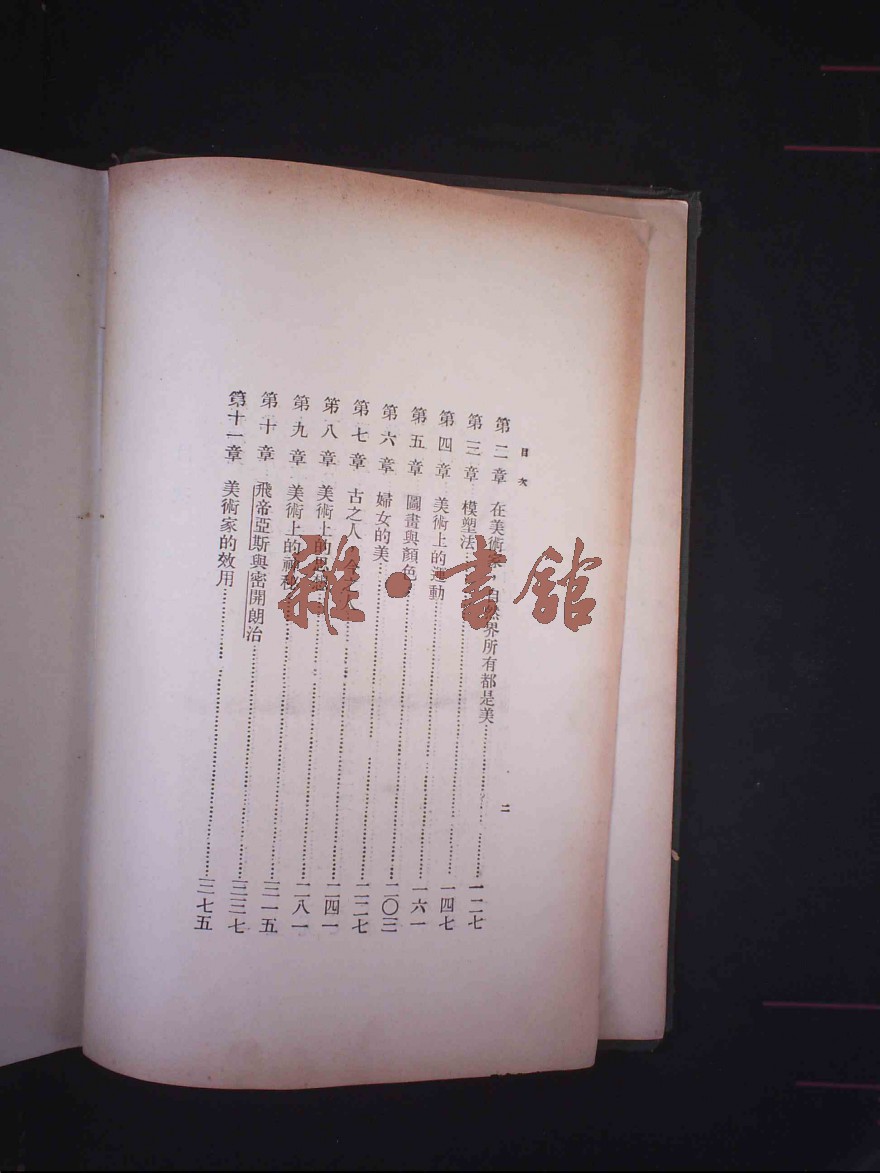 目次 二
第二章 在美術 自然界所有都是美 一二七
第三章 模塑法 一四七
第四章 美術上的運動 一六一
第五章 圖畫與顏色 二〇三
第六章 婦女的美 二二七
第七章 古之人 二四一
第八章 美術上的思想 二八一
第九章 美術上的神秘 三一五
第十章 飛帝亞斯與密開朗治 三三七
第十一章 美術家的效用 三七五
雜·書館